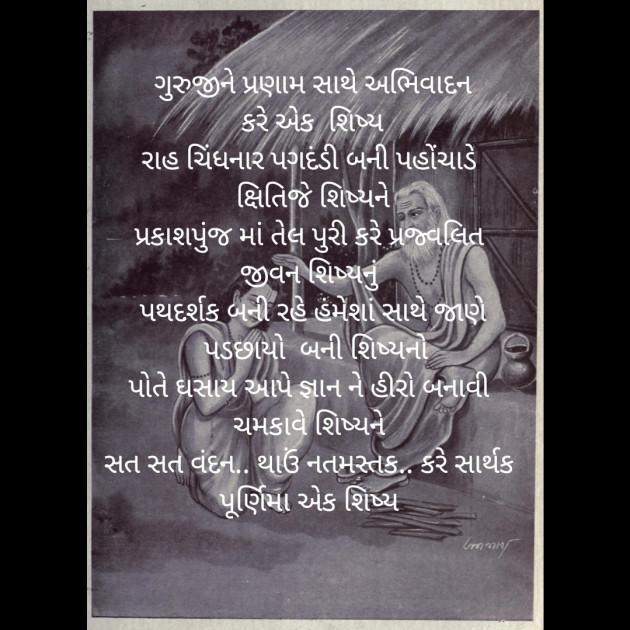 ગુરુજીને પ્રણામ સાથે અભિવાદન
કરે એક શિષ્ય
રાહ ચિંધનાર પગદંડી બની પહોંચાડે
ક્ષિતિજે શિષ્યને
પ્રકાશપુંજ માં તેલ પુરી કરે પ્રજ્વલિત
જીવન શિષ્યનું
પથદર્શક બની રહે હંમેશાં સાથે જાણે
પડછાયો બની શિષ્યનો
પોતે ઘસાય આપે જ્ઞાન ને હીરો બનાવી
ચમકાવે શિષ્યને
સત સત વંદન.. થાઉં નતમસ્તક.. કરે સાર્થક
પૂર્ણિમા એક શિષ્ય